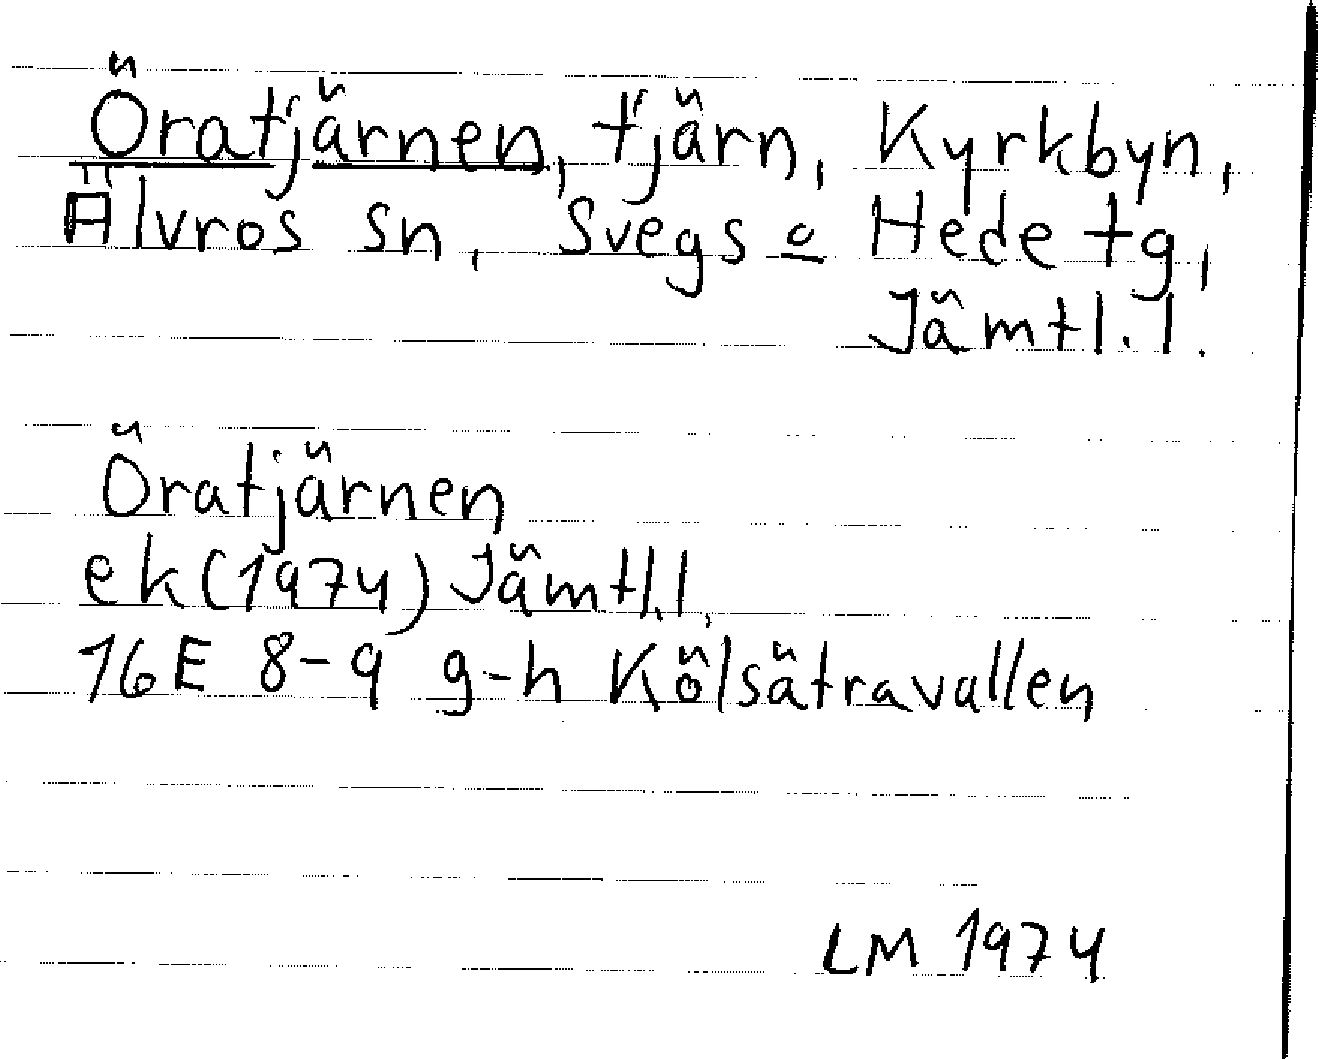 Öratjärnen, tjärn, Kyrkbyn,
Älvros sn, Svegs o Hede tg,
Jämtl. l.
Öratjärnen
ek (1974) Jämtl.l.
16E 8-9 g-h Kölsätravallen
LM 1974